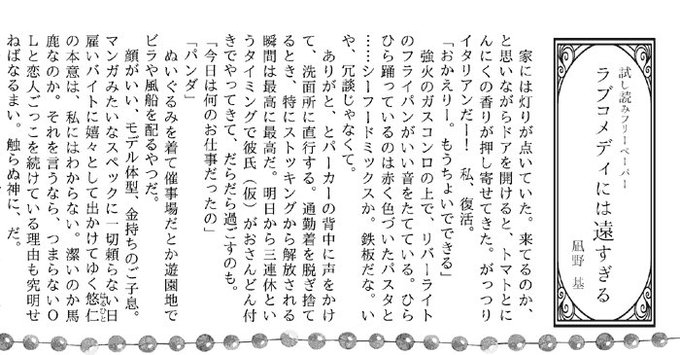 試し読みフリーペーパー
ラブコメディには遠すぎる
凪野 基
家には灯りが点いていた。来てるのか、
と思いながらドアを開けると、トマトとに
んにくの香りが押し寄せてきた。がっつり
イタリアンだー！　私、復活。
「おかえりー。もうちょいでできる」
強火のガスコンロの上で、リバーライト
のフライパンがいい音をたてている。ひら
ひら踊っているのは赤く色づいたパスタと
……シーフードミックスか。鉄板だな。い
や、冗談じゃなくて。
ありがと、とパーカーの背中に声をかけ
て、洗面所に直行する。通勤着を脱ぎ捨て
るとき、特にストッキングから解放される
瞬間は最高に最高だ。明日から三連休とい
うタイミングで彼氏（仮）がおさんどん付
きでやってきて、だらだら過ごすのも。
「今日は何のお仕事だったの」
「パンダ」
ぬいぐるみを着て催事場だとか遊園地で
ビラや風船を配るやつだ。
顔がいい、モデル体型、金持ちのご子息。
マンガみたいなスペックに一切頼らない日
雇いバイトに嬉々として出かけてゆく悠仁
はるひと
の本意は、私にはわからない。潔いのか馬
鹿なのか。それを言うなら、つまらないO
Lと恋人ごっこを続けている理由も究明せ
ねばなるまい。触らぬ神に、だ。